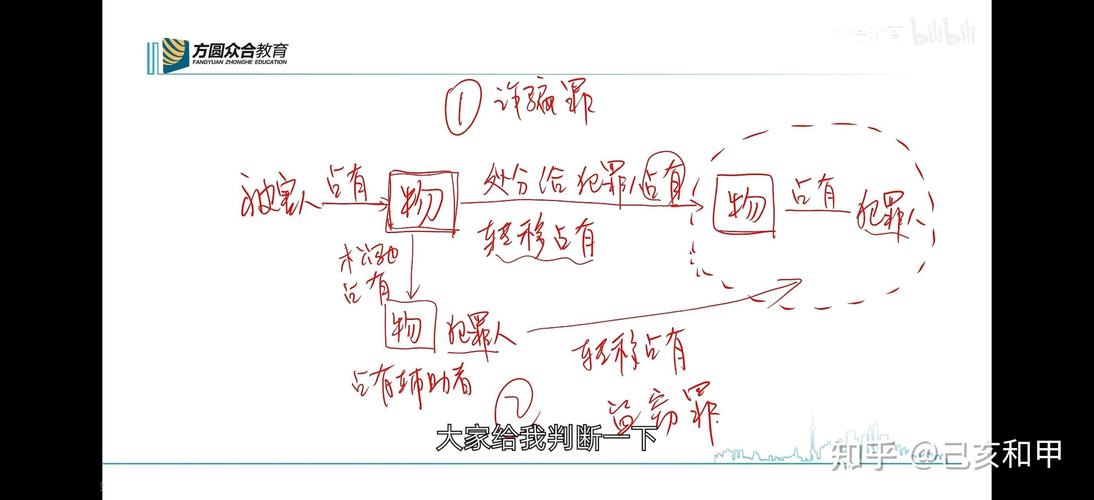 方圆众合教育
FANGYUAN ZHONGHE EDUCATION
bilibili
① 诈骗罪
被害人 占有 物 处分给犯罪人占有 物 占有 犯罪人
转移占有
未松弛
占有
物 犯罪人
转移占有
占有辅助者
② 盗窃罪
大家给我判断一下
知乎 @己亥和甲